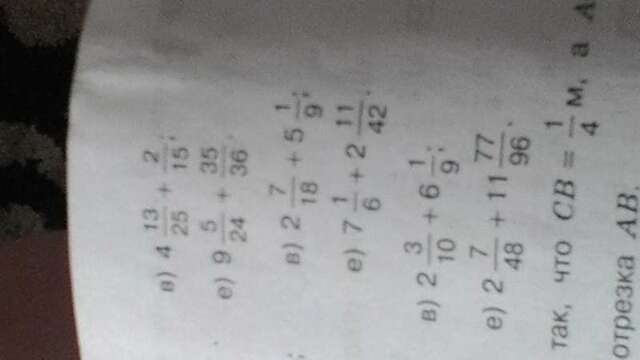 в) 4 13/25 + 2/15;
е) 9 5/24 + 35/36.
; в) 2 7/18 + 5 1/9;
е) 7 1/6 + 2 11/42.
в) 2 3/10 + 6 1/9;
е) 2 7/48 + 11 77/96.
так, что CB = 1/4 м, а A
отрезка AB.